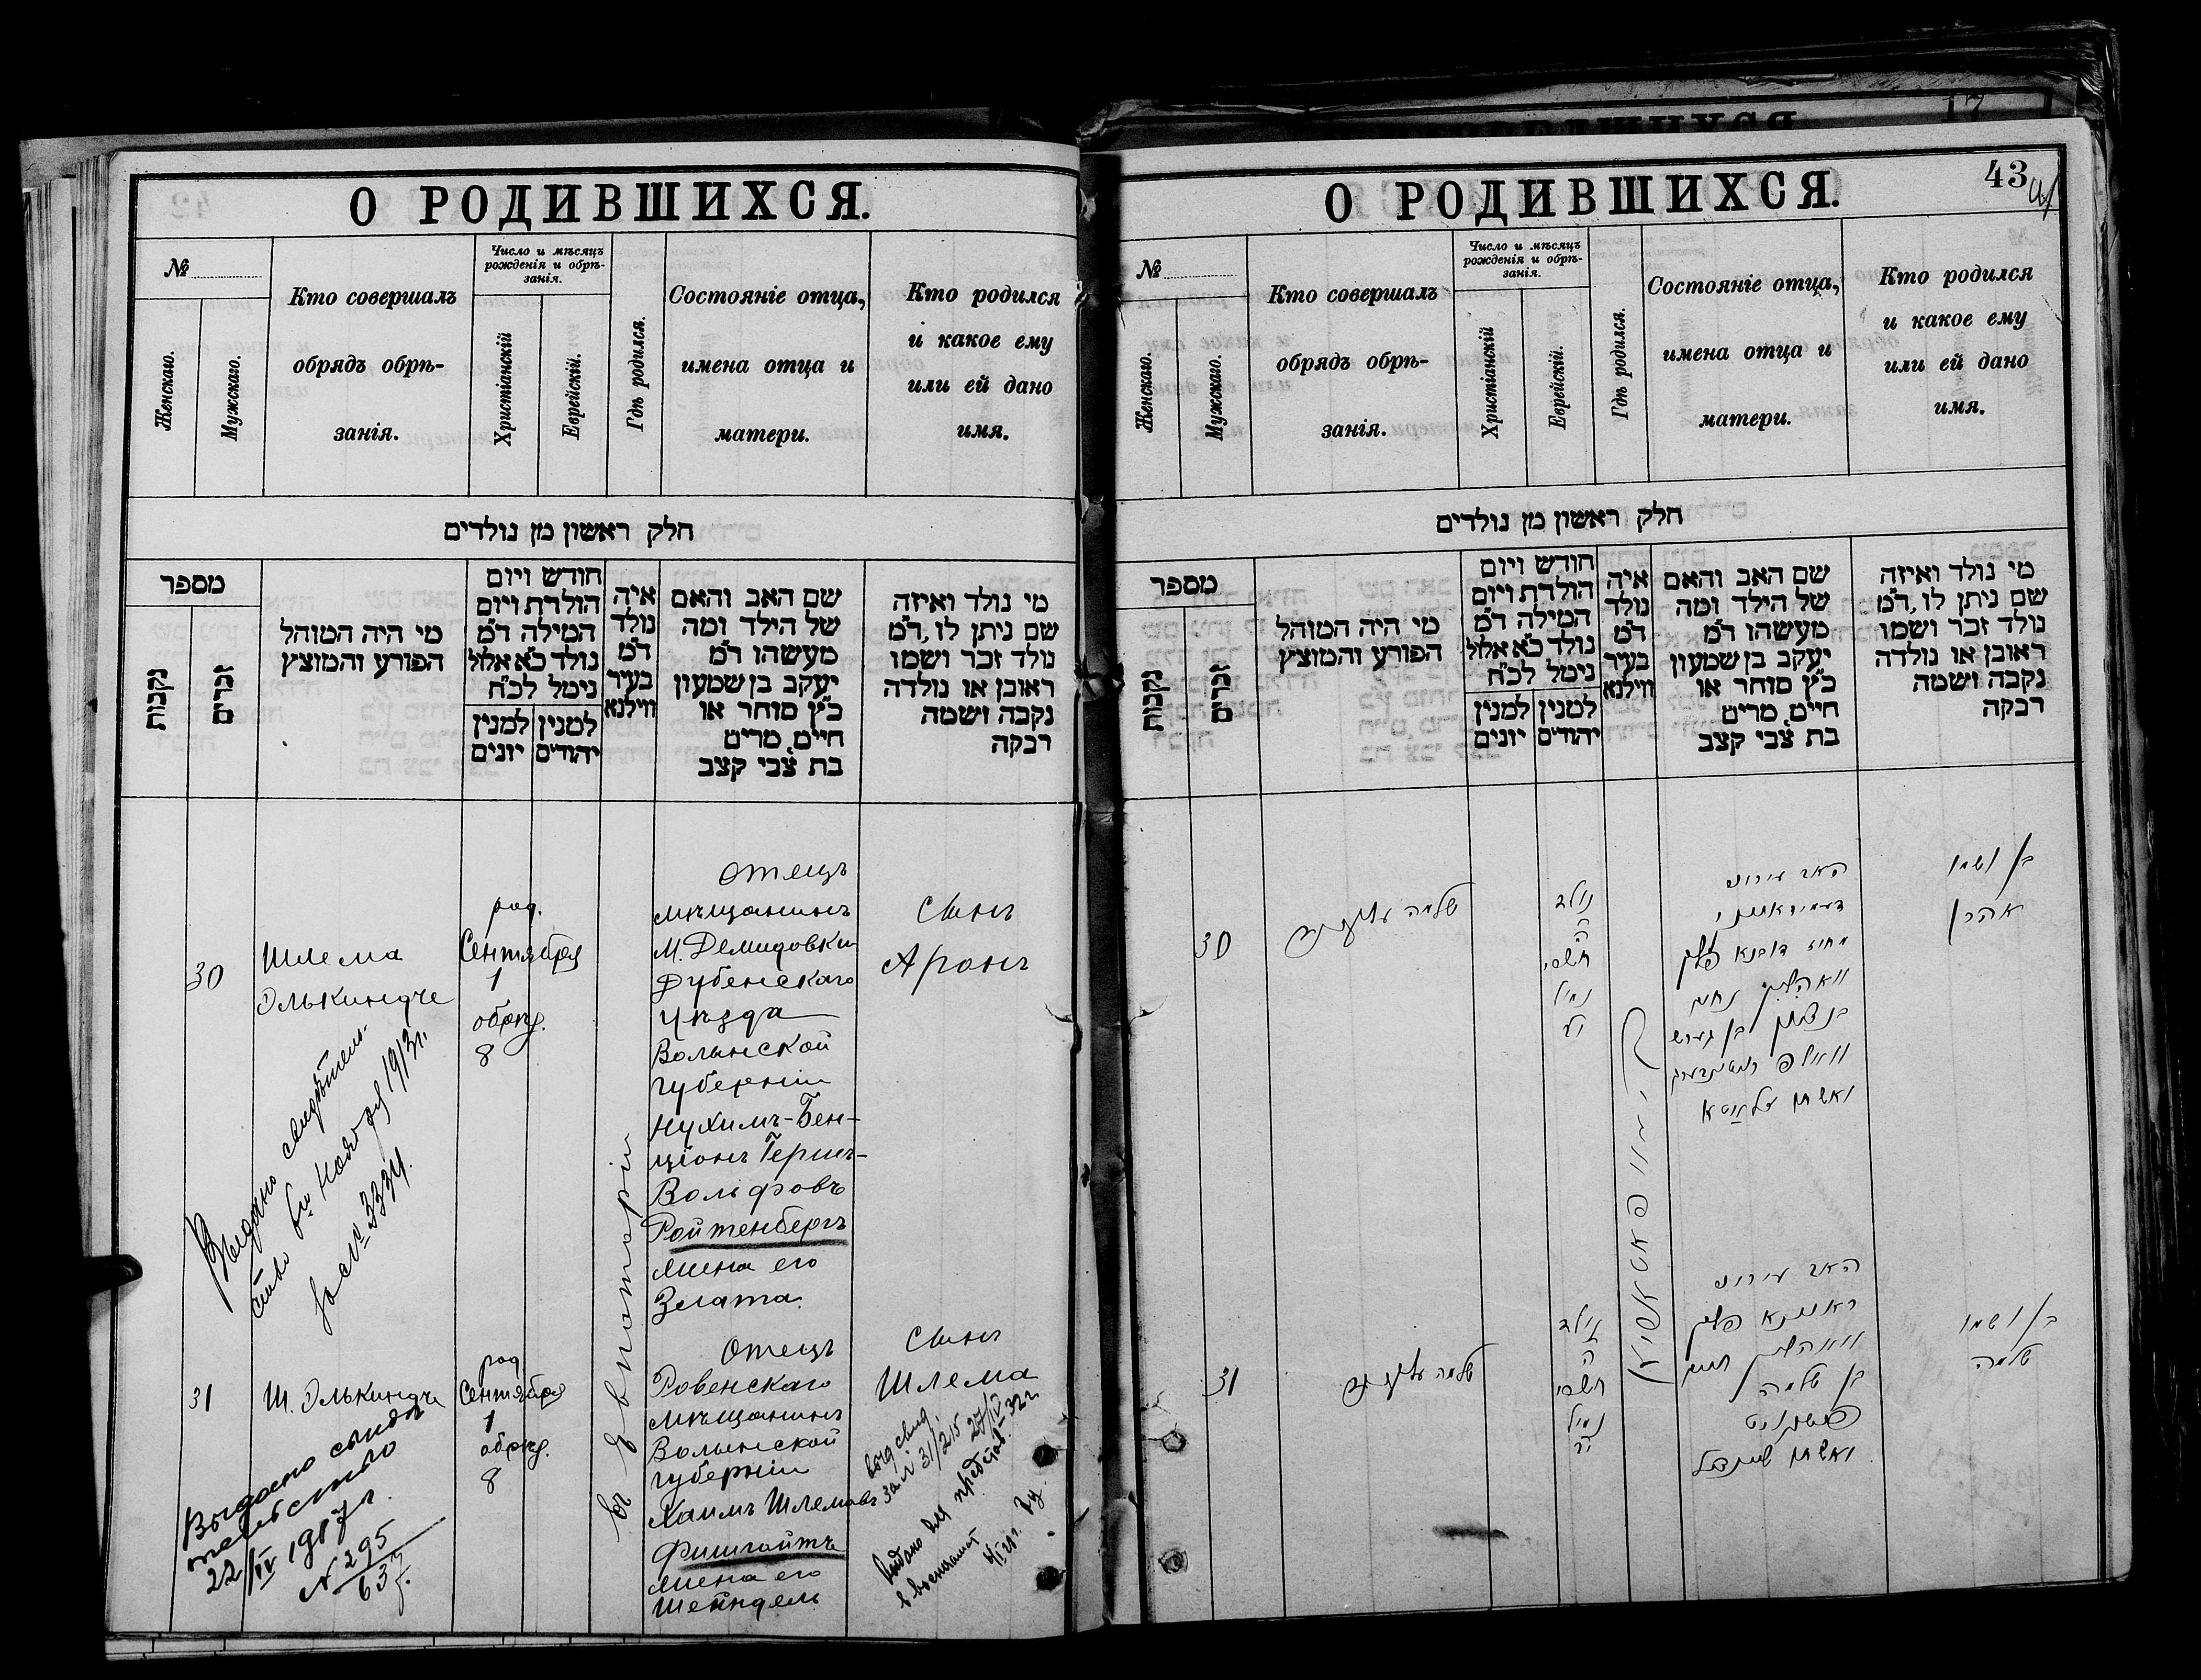 О РОДИВШИХСЯ.
№
Женскаго.
Мужскаго.
Кто совершалъ
обрядъ обрѣ-
занія.
Число и мѣсяцъ
рожденія и обрѣ-
занія.
Христіанскій
Еврейскій.
Гдѣ родился.
Состояніе отца,
имена отца и
матери.
Кто родился
и какое ему
или ей дано
имя.
חלק ראשון מן נולדים
מספר
נקבות
זכרים
מי היה המוהל
הפורע והמוצץ
חודש ויום
הולדת ויום
המילה ד״מ
נולד כ״א אלול
נימל לכ״ח
למנין יונים
למנין יהודים
איה
נולד
ד״מ
בעיר
ווילנא
שם האב והאם
של הילד ומה
מעשהו ד״מ
יעקב בן שמעון
כ״ץ סוחר או
חיים, מרים
בת צבי קצב
מי נולד ואיזה
שם ניתן לו, ד״מ
נולד זכר ושמו
ראובן או נולדה
נקבה ושמה
רבקה
30
Шлема
Элькиндъ
род.
Сентября
1
обрѣз.
8
Въ Евпаторіи
Отецъ
мѣщанинъ
М. Демидовки
Дубенскаго
уѣзда
Волынской
губерніи
Нухимъ-Бен-
ціонъ Герш-
Вольфовъ
Ройтенбергъ
жена его
Злата.
Сынъ
Аронъ
Выдано свидѣтель-
ство 6го Ноября 1913г.
за № 3334.
31
Ш. Элькиндъ
род.
Сентября
1
обрѣз.
8
Отецъ
Ровенскаго
мѣщанинъ
Волынской
губерніи
Хаимъ Шлемовъ
Фишгойтъ
жена его
Шейндель
Сынъ
Шлема
Выдано свидѣ-
тельство
22/IV 1917 г.
N 295
63
за № 31/215 27/IV 32 г.
О РОДИВШИХСЯ.
43
№
Женскаго.
Мужскаго.
Кто совершалъ
обрядъ обрѣ-
занія.
Число и мѣсяцъ
рожденія и обрѣ-
занія.
Христіанскій
Еврейскій.
Гдѣ родился.
Состояніе отца,
имена отца и
матери.
Кто родился
и какое ему
или ей дано
имя.
חלק ראשון מן נולדים
מספר
נקבות
זכרים
מי היה המוהל
הפורע והמוצץ
חודש ויום
הולדת ויום
המילה ד״מ
נולד כ״א אלול
נימל לכ״ח
למנין יונים
למנין יהודים
איה
נולד
ד״מ
בעיר
ווילנא
שם האב והאם
של הילד ומה
מעשהו ד״מ
יעקב בן שמעון
כ״ץ סוחר או
חיים, מרים
בת צבי קצב
מי נולד ואיזה
שם ניתן לו, ד״מ
נולד זכר ושמו
ראובן או נולדה
נקבה ושמה
רבקה
30
שלמה
נולד
ה
תשרי
נמול
האב עירוני
מחוז דובנא פלך
וואהלין נחום
בן ציון בן גערש
וואלף רויטענבערג
ואשתו זלאטא
בן ושמו
אהרן
31
שלמה
נולד
ה
תשרי
נמול
האב עירוני
ראוונא פלך
וואהלין חיים
בן שלמה
ואשתו שיינדל
בן ושמו
שלמה